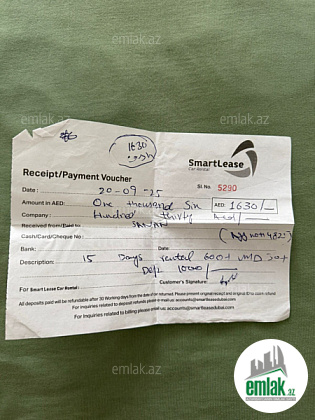 emlak.az
1630
SmartLease
Car Rental
Receipt/Payment Voucher
SI. No. 5290
Date : 20-09-25
Amount in AED: One thousand Six AED 1630/-
Company : Hundred thirty
Received from/Paid to
Cash/Card/Cheque No :
Bank: Date:
Description: 15 Days rental 600+
Dep: 1000/-
For Smart Lease Car Rental Customer's Signature:
All deposits paid will be refundable after 30 Working days from the date of car returned. Please present original receipt and original ID to claim refund.
For inquiries related to deposit refunds please e-mail us: accounts@smartleasedubai.com
For inquiries related to billing please email us: accounts@smartleasedubai.com
emlak.az
emlak.az